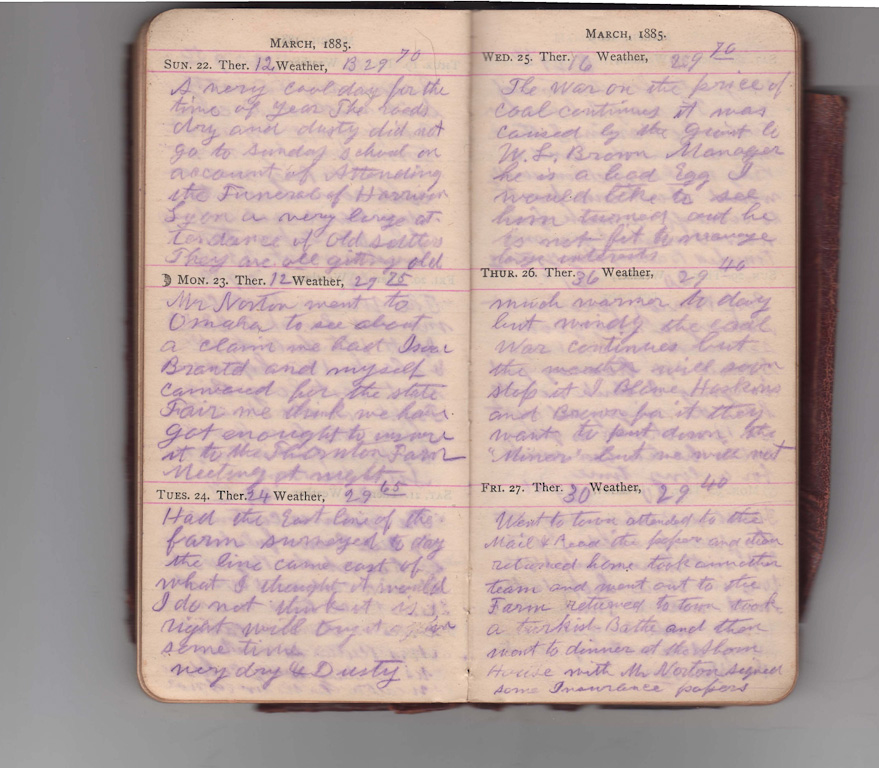 MARCH, 1885.
SUN. 22. Ther. 12 Weather, B 29 70
A very cool day for the
time of Year The roads
dry and dusty did not
go to Sunday School on
account of Attending
the Funeral of Harrison
Lyon a very large at
tendance of Old settlers
They are all giting old
MON. 23. Ther. 12 Weather, 29 75
Mr Norton went to
Omaha to see about
a claim we had
and myself
canvased for the state
Fair we think we have
got enought to insure
it to the Thornton Farm
Meeting at night
TUES. 24. Ther. 24 Weather, 29 65
Had the East line of the
farm surveyed to day
the line came east of
what I thought it would
I do not think it is
right will try it again
some time
very dry & Dusty
MARCH, 1885.
WED. 25. Ther. 16 Weather, 29 70
The War on the price of
coal continues it was
caused by the
W. L. Brown Manager
he is a bad Egg I
would like to see
him turned out he
is not fit to manage
large intrests
THUR. 26. Ther. 36 Weather, 29 40
much warmer to day
but windy the coal
War continues but
the weather will soon
stop it I Blame Haskins
and Brown for it they
want to put down the
"Minor" but we will not
FRI. 27. Ther. 30 Weather, 29 40
Went to town attended to the
Mail & Read the papers and then
returned home took annother
team and went out to the
Farm returned to town took
a turkish Bathe and then
went to dinner at the
House with Mr Norton signed
some Insurance papers